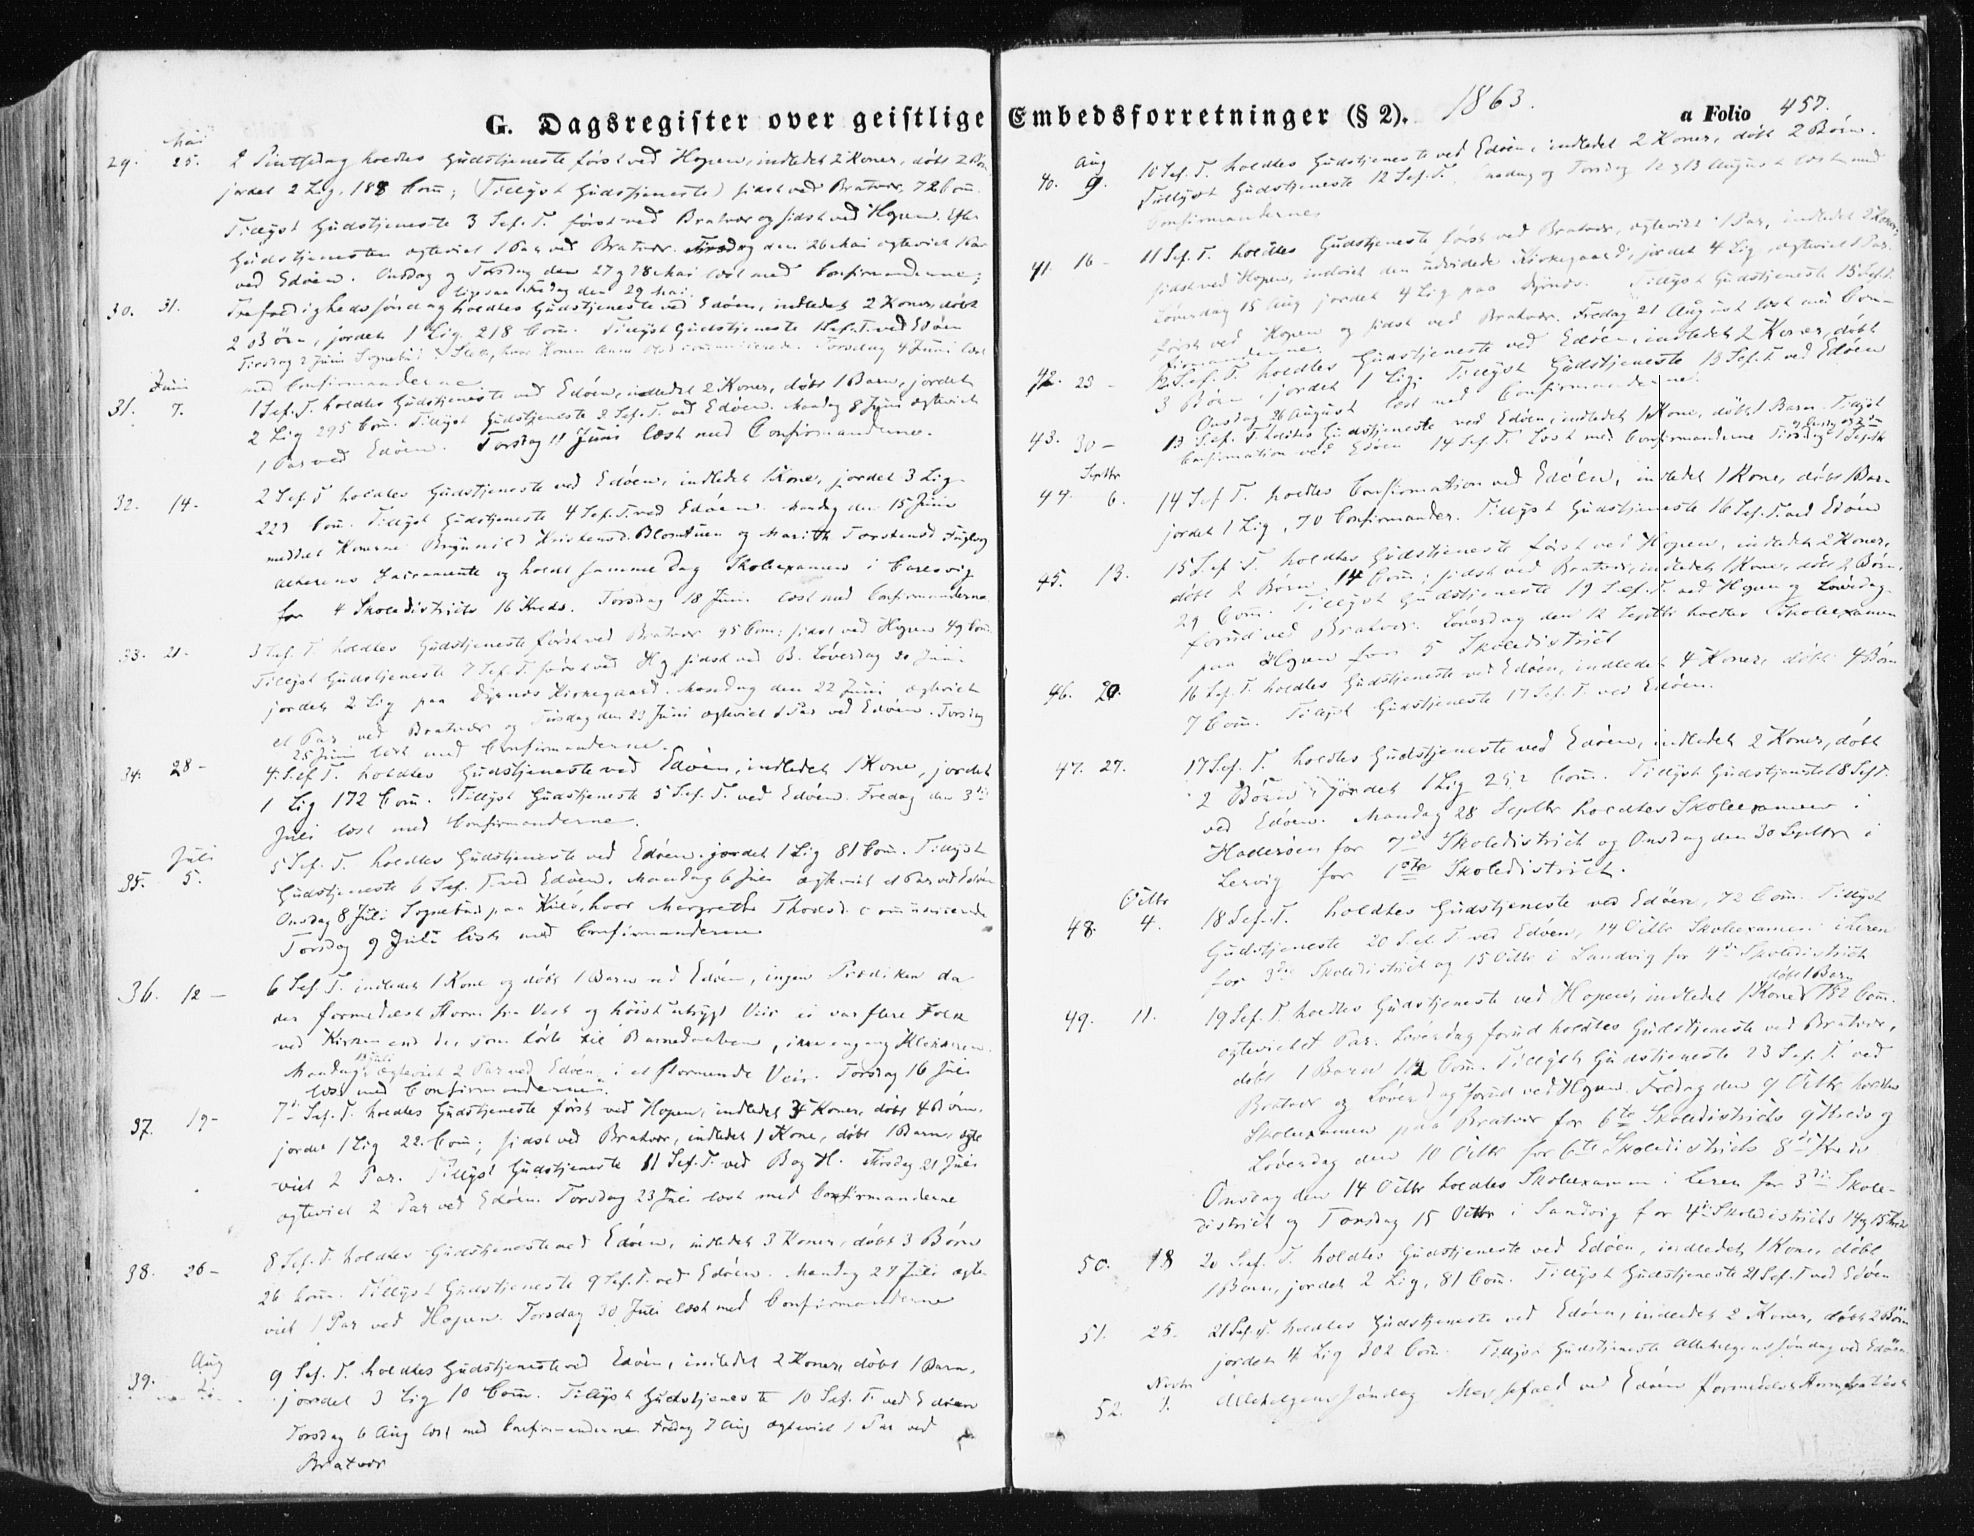 G. Dagsregister over geistlige Embedsforretninger (§ 2). 1863. a Folio 457.
Mai
29. 25. 2 Pintsedag holdtes Gudstjeneste først ved Hopen, indledet 2 Koner, døbt 2 Børn
jordet 2 Lig, 188 Com; (Tillyst Gudstjeneste) sidst ved Bratvær, 72 Com.
Tillyst Gudstjeneste 3 S.ef.T. først ved Bratvær og sidst ved Hopen. Efter
Gudstjenesten ægteviet 1 Par ved Bratvær. Tirsdag den 26 Mai ægteviet 1 Par
ved Edøen. Onsdag og Torsdag den 27 og 28 Mai læst med Confirmanderne;
ligesaa Fredag den 29 Mai.
30. 31. Trefoldighedssøndag holdtes Gudstjeneste ved Edøen, indledet 2 Koner, døbt
2 Børn, jordet 1 Lig, 218 Com. Tillyst Gudstjeneste 1 S.ef.T. ved Edøen
Tirsdag 2 Juni Sognebud hvor Konen Anne Torsdag 4 Juni læst
med Confirmanderne
Juni
31. 7. 1 S.ef.T. holdtes Gudstjeneste ved Edøen, indledet 2 Koner, døbt 1 Barn, jordet
2 Lig 295 Com. Tillyst Gudstjeneste 2 S.ef.T. ved Edøen. Mandag 8 Juni ægteviet
1 Par ved Edøen. Torsdag 11 Juni læst med Confirmanderne.
32. 14. 2 S.ef.T. holdtes Gudstjeneste ved Edøen, indledet 1 Kone, jordet 3 Lig
223 Com. Tillyst Gudstjeneste 4 S.ef.T. ved Edøen. Mandag den 15 Juni
meddelt Konerne Brynnild Kristensd. og Marith Torstensd
Alterens Sacramente og holdt samme Dag Skoleexamen i
for 4 Skoledistricts 16 Kreds. Torsdag 18 Juni læst med Confirmanderne
33. 21. 3 S.ef.T. holdtes Gudstjeneste først ved Bratvær 95 Com; sidst ved Hopen 49 Com.
Tillyst Gudstjeneste 7 S.ef.T. først ved H og sidst ved B. Løverdag 20 Juni
jordet 2 Lig paa Dyrnæs Kirkegaard. Mandag den 22 Juni ægteviet
et Par ved Bratvær og Tirsdag den 23 Juni ægteviet 1 Par ved Edøen. Torsdag
25 Juni læst med Confirmanderne.
34. 28 - 4. S.ef.T. holdtes Gudstjeneste ved Edøen, indledet 1 Kone, jordet
1 Lig 172 Com. Tillyst Gudstjeneste 5 S.ef.T. ved Edøen. Fredag den 3die
Juli læst med Confirmanderne.
Juli
35. 5. 5 S.ef.T. holdtes Gudstjeneste ved Edøen. jordet 1 Lig 81 Com. Tillyst
Gudstjeneste 6 S.ef.T. ved Edøen. Mandag 6 Juli ægteviet et Par ved Edøen
Onsdag 8 Juli Sognebud paa hvor Margrethe
Torsdag 9 Juli læst med Confirmanderne
36. 12 - 6 S.ef.T. indledet 1 Kone og døbt 1 Barn ved Edøen, ingen Prædiken da
der formedelst Storm fra Vest og høist utrygt Veir ei var flere Folk
ved Kirken end de, som hørte til Barnedaaben, ikke engang Klokkeren.
Mandag 13 Juli ægteviet 2 Par ved Edøen i et stormende Veir. Torsdag 16 Juli
læst med Confirmanderne.
37. 19 - 7de S.ef.T. holdtes Gudstjeneste først ved Hopen, indledet 4 Koner, døbt 4 Børn,
jordet 1 Lig 22 Com; sidst ved Bratvær, indledet 1 Kone, døbt 1 Barn, ægte
viet 2 Par. Tillyst Gudstjeneste 11 S.ef.T. ved B og H. Tirsdag 21 Juli
ægteviet 2 Par ved Edøen. Torsdag 23 Juli læst med Confirmanderne
38. 26 - 8 S.ef.T. holdtes Gudstjeneste ved Edøen, indledet 3 Koner, døbt 3 Børn
26 Com. Tillyst Gudstjeneste 9 S.ef.T. ved Edøen. Mandag 27 Juli ægte
viet 1 Par ved Hopen. Torsdag 30 Juli læst med Confirmanderne
Aug
39. 2. 9 S.ef.T. holdtes Gudstjeneste ved Edøen, indledet 2 Koner, døbt 1 Barn,
jordet 3 Lig 10 Com. Tillyst Gudstjeneste 10 S.ef.T. ved Edøen
Torsdag 6 Aug læst med Confirmanderne Fredag 7 Aug ægteviet 1 Par ved
Bratvær
Aug
40. 9. 10 S.ef.T. holdtes Gudstjeneste ved Edøen, indledet 2 Koner, døbt 2 Børn.
Tillyst Gudstjeneste 12 S.ef.T. Onsdag og Torsdag 12 og 13 August læst med
Confirmanderne
41. 16 - 11 S.ef.T. holdtes Gudstjeneste først ved Bratvær, ægteviet 1 Par, indledet 2 Koner,
sidst ved Hopen, indviet den udvidede Kirkegaard, jordet 4 Lig, ægteviet 1 Par.
Løverdag 15 Aug jordet 4 Lig paa Dyrnæs. Tillyst Gudstjeneste 15 S.ef.T.
først ved Hopen og sidst ved Bratvær. Fredag 21 August læst med Con-
firmanderne.
42. 23 - 12 S.ef.T. holdtes Gudstjeneste ved Edøen, indledet 2 Koner, døbt
3 Børn, jordet 1 Lig. Tillyst Gudstjeneste 13 S.ef.T. ved Edøen
Onsdag 26 August læst med Confirmanderne.
43. 30 - 13 S.ef.T. holdtes Gudstjeneste ved Edøen, indledet 1 Kone, døbt 1 Barn. Tillyst
Confirmation ved Edøen 14 S.ef.T. Læst med Confirmanderne Tirsdag 1 Septbr
Septbr
44. 6. 14 S.ef.T. holdtes Confirmation ved Edøen, indledet 1 Kone, døbt 1 Barn
jordet 1 Lig, 70 Confirmander. Tillyst Gudstjeneste 16 S.ef.T. ved Edøen
45. 13. 15 S.ef.T. holdtes Gudstjeneste først ved Hopen, indledet 2 Koner,
døbt 2 Børn, 14 Com; sidst ved Bratvær, indledet 1 Kone, døbt 2 Børn,
29 Com. Tillyst Gudstjeneste 19 S.ef.T. ved Hopen og Løverdag
forud ved Bratvær. Løverdag den 12 Septbr holdtes Skoleexamen
paa Hopen for 5 Skoledistrict
46. 20. 16 S.ef.T. holdtes Gudstjeneste ved Edøen, indledet 4 Koner, døbt 4 Børn
7 Com. Tillyst Gudstjeneste 17 S.ef.T. ved Edøen.
47. 27. 17 S.ef.T. holdtes Gudstjeneste ved Edøen, indledet 2 Koner, døbt
2 Børn, jordet 1 Lig 252 Com. Tillyst Gudstjeneste 18 S.ef.T.
ved Edøen. Mandag 28 Septbr holdtes Skoleexamen i
Haderøen for 7de Skoledistrict og Onsdag den 30 Septbr i
Lervig for 1ste Skoledistrict.
Octbr
48. 4. 18 S.ef.T. holdtes Gudstjeneste ved Edøen, 72 Com. Tillyst
Gudstjeneste 20 S.ef.T. ved Edøen, 14 Octbr Skoleexamen i Leren
for 3die Skoledistrict og 15 Octbr i Sandvig for 4de Skoledistrict
døbt 1 Barn
49. 11. 19 S.ef.T. holdtes Gudstjeneste ved Hopen, indledet 1 Kone, 132 Com.
ægteviet et Par. Løverdag forud holdtes Gudstjeneste ved Bratvær,
døbt 1 Barn 112 Com. Tillyst Gudstjeneste 23 S.ef.T. ved
Bratvær og Løverdag forud ved Hopen. Fredag den 9 Octbr holdtes
Skoleexamen paa Bratvær for 6te Skoledistricts 9 Kreds og
Løverdag den 10 Octbr for 6te Skoledistricts 8de Kreds
Onsdag den 14 Octbr holdtes Skoleexamen i Leren for 3die Skole-
district og Torsdag 15 Octbr i Sandvig for 4de Skoledistricts 14 og 15 Kreds
50. 18 20 S.ef.T. holdtes Gudstjeneste ved Edøen, indledet 1 Kone, døbt
1 Barn, jordet 2 Lig, 81 Com. Tillyst Gudstjeneste 21 S.ef.T. ved Edøen
51. 25. 21 S.ef.T. holdtes Gudstjeneste ved Edøen, indledet 2 Koner, døbt 2 Børn
jordet 4 Lig 302 Com. Tillyst Gudstjeneste Allehelgenssøndag ved Edøen
Novbr
52. 1. Allehelgenssøndag Messefald ved Edøen formedelst Storm fra Vest